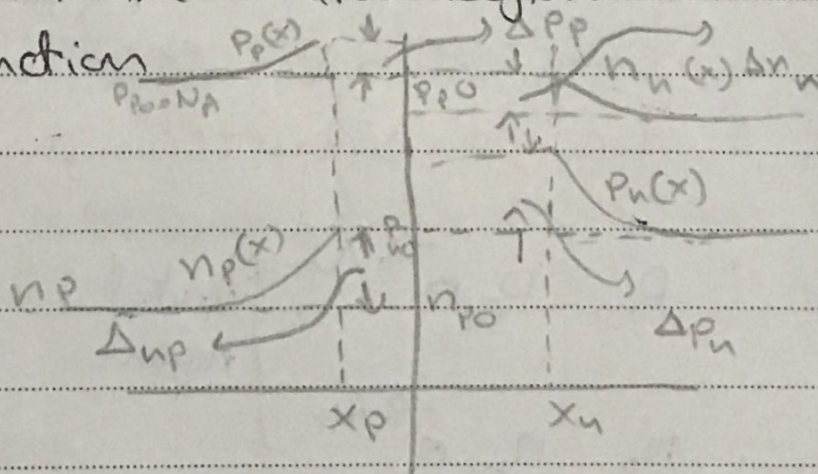 nction
Pp(x)
ΔPp
Ppo=NA
Ppo
nn(x) Δnn
Pn(x)
np(x)
Pno
np
npo
Δnp
ΔPn
xp
xn